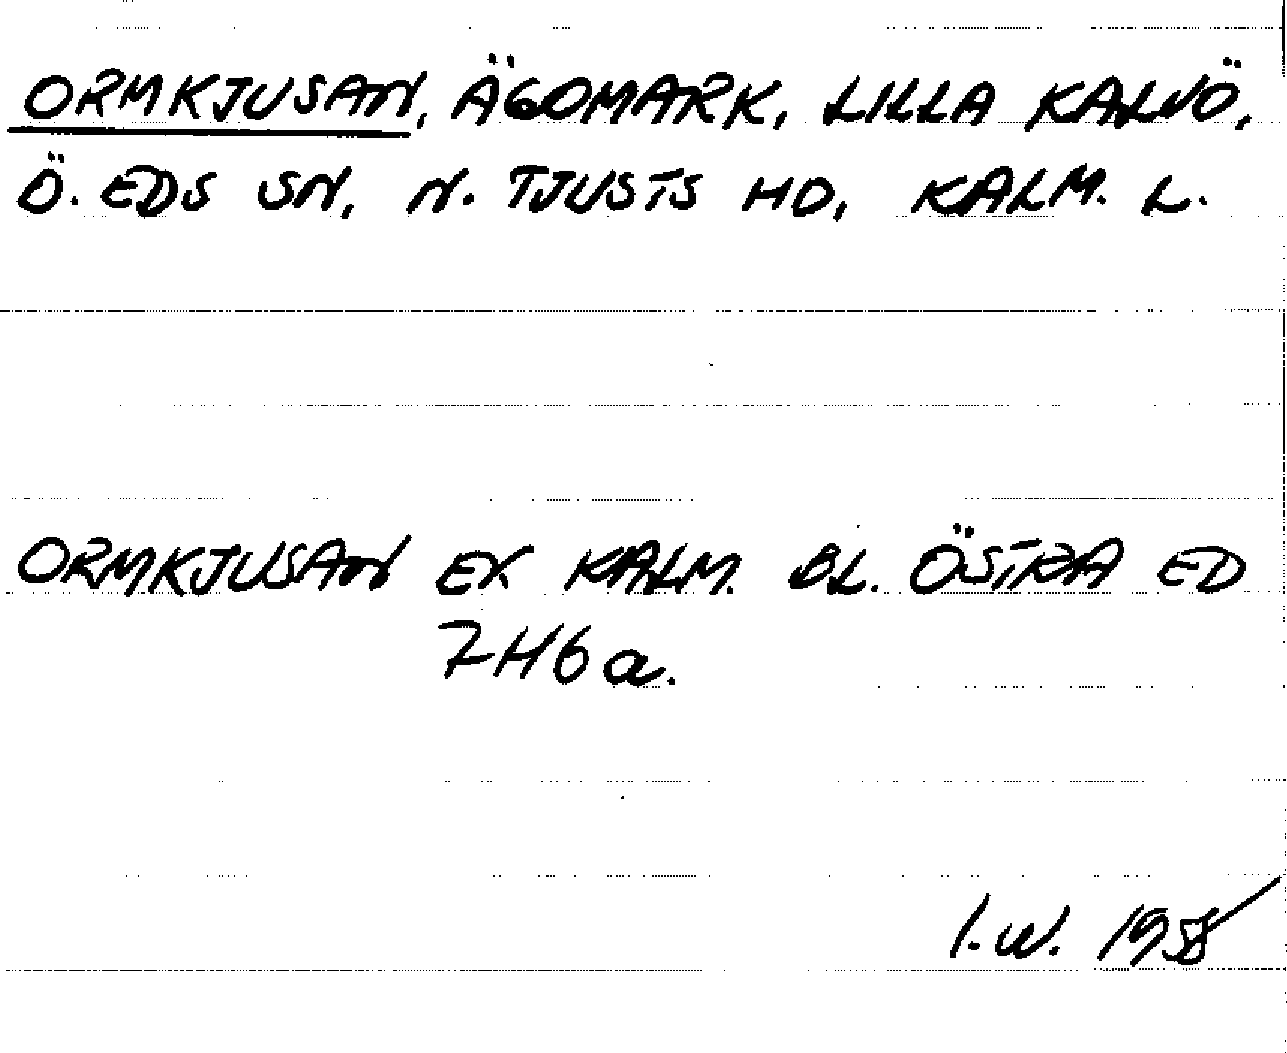 ORMKJUSAN, ÄGOMARK, LILLA KALVÖ,
Ö. EDS SN, N. TJUSTS HD, KALM. L.
ORMKJUSAN EK KALM. BL. ÖSTRA ED
7H6a.
I.W. 195